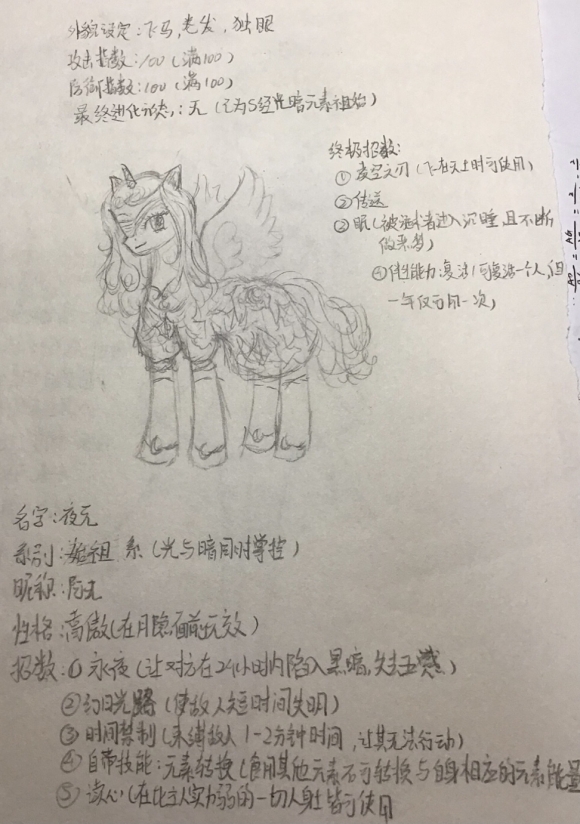 外貌设定:飞马,卷发,独眼
攻击指数:100(满100)
防御指数:100(满100)
最终进化形态:无(已为S经光暗元素祖始)
终极招数:
①凌空之刃(飞在天上时可使用)
②传送
③眠(被施术者进入沉睡,且不断做噩梦)
④伴生能力:复活(可复活一个人,但
一年仅可用一次)
名字:夜无
系别:始祖系(光与暗同时掌控)
昵称:
性格:高傲(在月隐面前无效)
招数:①永夜(让对方在24小时内陷入黑暗,失去五感)
②幻日光路(使敌人短时间失明)
③时间禁制(束缚敌人1-2分钟时间,让其无法行动)
④自带技能:元素转换(食用其他元素石可转换与自身相应的元素能量
⑤读心(在比主人实力弱的一切人身上皆可使用